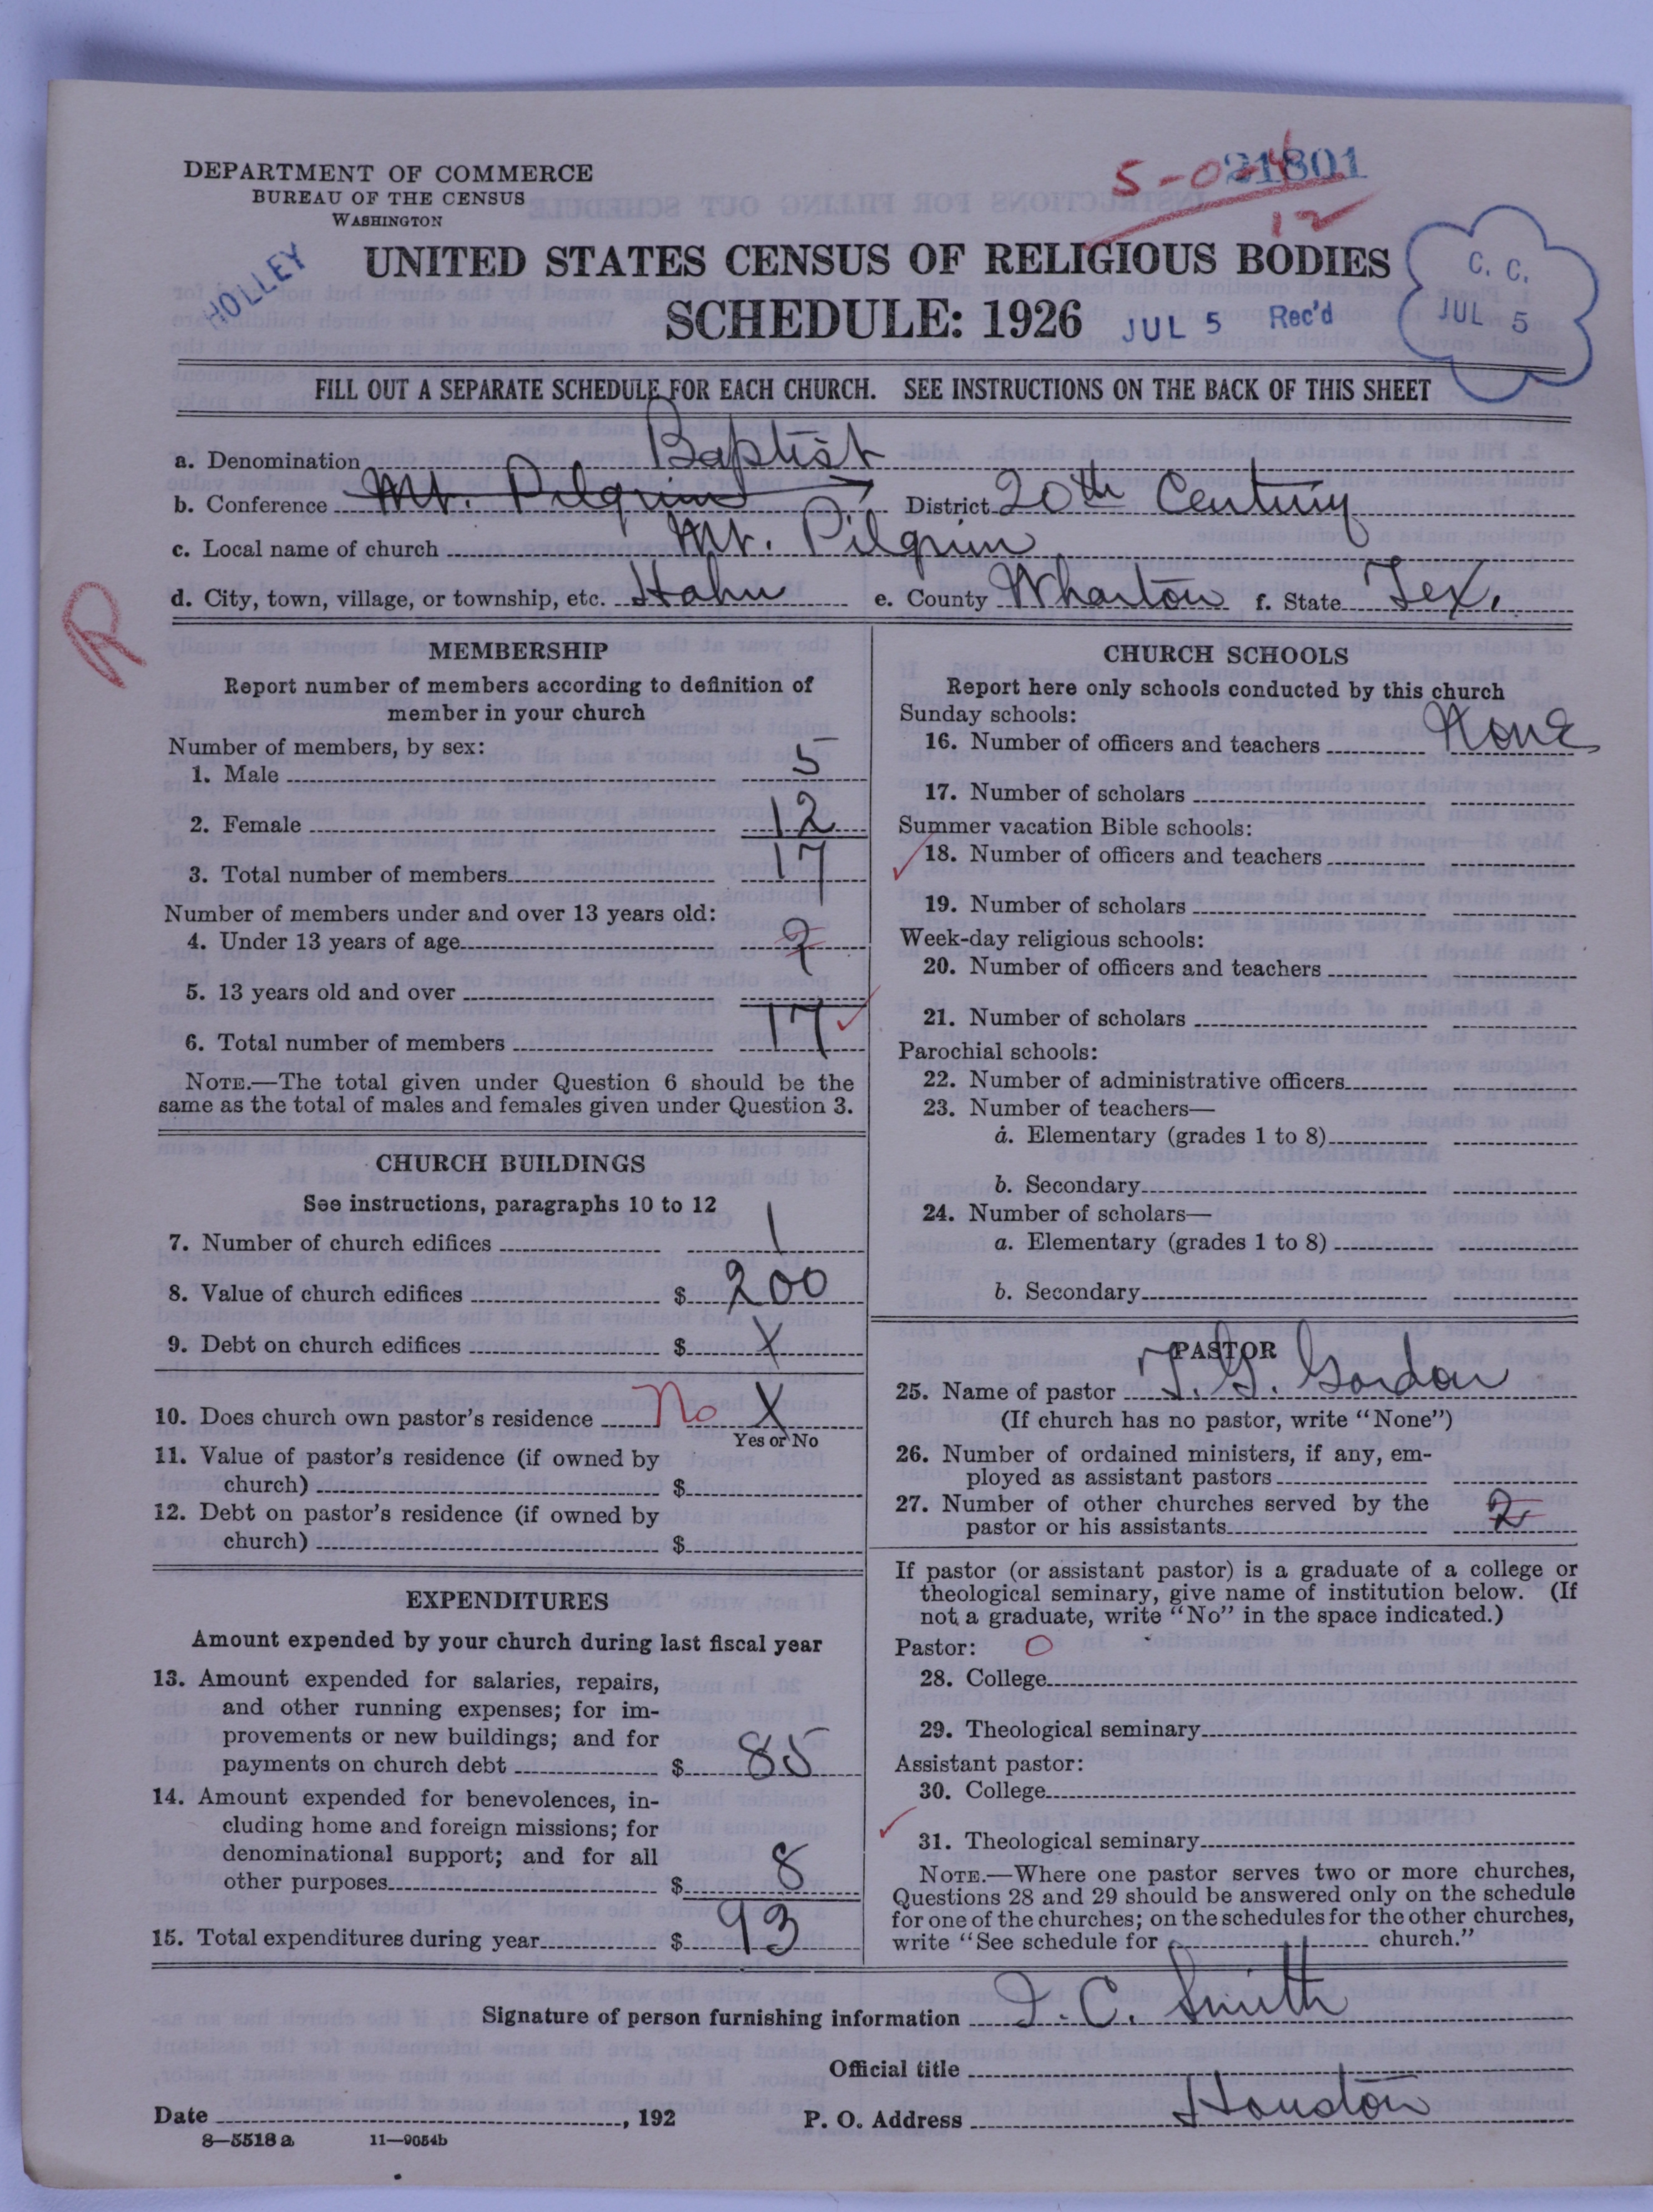 DEPARTMENT OF COMMERCE
BUREAU OF THE CENSUS
WASHINGTON
21801
12
HOLLEY
UNITED STATES CENSUS OF RELIGIOUS BODIES
SCHEDULE: 1926
JUL 5 Rec'd
C. C.
JUL 5
FILL OUT A SEPARATE SCHEDULE FOR EACH CHURCH. SEE INSTRUCTIONS ON THE BACK OF THIS SHEET
a. Denomination Baptist
b. Conference Mt. Pilgrim District 20th Century
c. Local name of church Mt. Pilgrim
d. City, town, village, or township, etc. Hahn e. County Wharton f. State Tex.
R
MEMBERSHIP
Report number of members according to definition of
member in your church
Number of members, by sex:
1. Male 5
2. Female 12
3. Total number of members 17
Number of members under and over 13 years old:
4. Under 13 years of age 2
5. 13 years old and over
6. Total number of members 17
NOTE.—The total given under Question 6 should be the
same as the total of males and females given under Question 3.
CHURCH BUILDINGS
See instructions, paragraphs 10 to 12
7. Number of church edifices 1
8. Value of church edifices $ 200
9. Debt on church edifices $ X
10. Does church own pastor's residence No X
Yes or No
11. Value of pastor's residence (if owned by
church) $
12. Debt on pastor's residence (if owned by
church) $
EXPENDITURES
Amount expended by your church during last fiscal year
13. Amount expended for salaries, repairs,
and other running expenses; for im-
provements or new buildings; and for
payments on church debt $ 85
14. Amount expended for benevolences, in-
cluding home and foreign missions; for
denominational support; and for all
other purposes $ 8
15. Total expenditures during year $ 93
CHURCH SCHOOLS
Report here only schools conducted by this church
Sunday schools:
16. Number of officers and teachers None
17. Number of scholars
Summer vacation Bible schools:
18. Number of officers and teachers
19. Number of scholars
Week-day religious schools:
20. Number of officers and teachers
21. Number of scholars
Parochial schools:
22. Number of administrative officers
23. Number of teachers—
a. Elementary (grades 1 to 8)
b. Secondary
24. Number of scholars—
a. Elementary (grades 1 to 8)
b. Secondary
PASTOR
25. Name of pastor T. G. Gordon
(If church has no pastor, write "None")
26. Number of ordained ministers, if any, em-
ployed as assistant pastors
27. Number of other churches served by the
pastor or his assistants 2
If pastor (or assistant pastor) is a graduate of a college or
theological seminary, give name of institution below. (If
not a graduate, write "No" in the space indicated.)
Pastor: O
28. College
29. Theological seminary
Assistant pastor:
30. College
31. Theological seminary
NOTE.—Where one pastor serves two or more churches,
Questions 28 and 29 should be answered only on the schedule
for one of the churches; on the schedules for the other churches,
write "See schedule for church."
Signature of person furnishing information J. C. Smith
Official title
Date , 192 P. O. Address Houston
8—5518 a 11—9054b